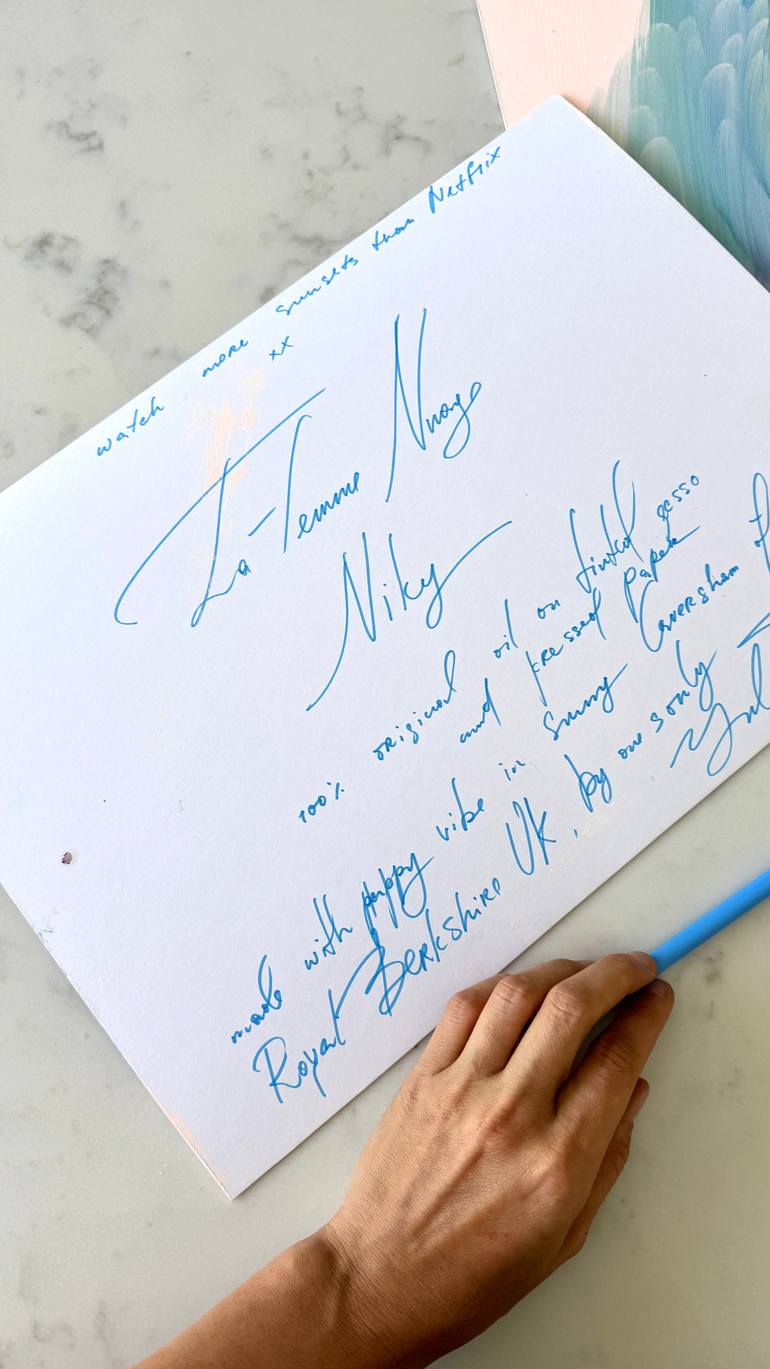 watch more sunsets than Netflix
xx
La-Femme Nuage
Niky
100% original oil on tinted gesso
and pressed paper
made with puppy vibe in sunny Caversham of
Royal Berkshire UK, by one & only